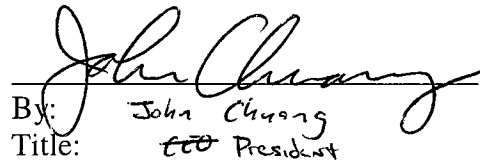 John Chuang
By: John Chuang
Title: CEO President